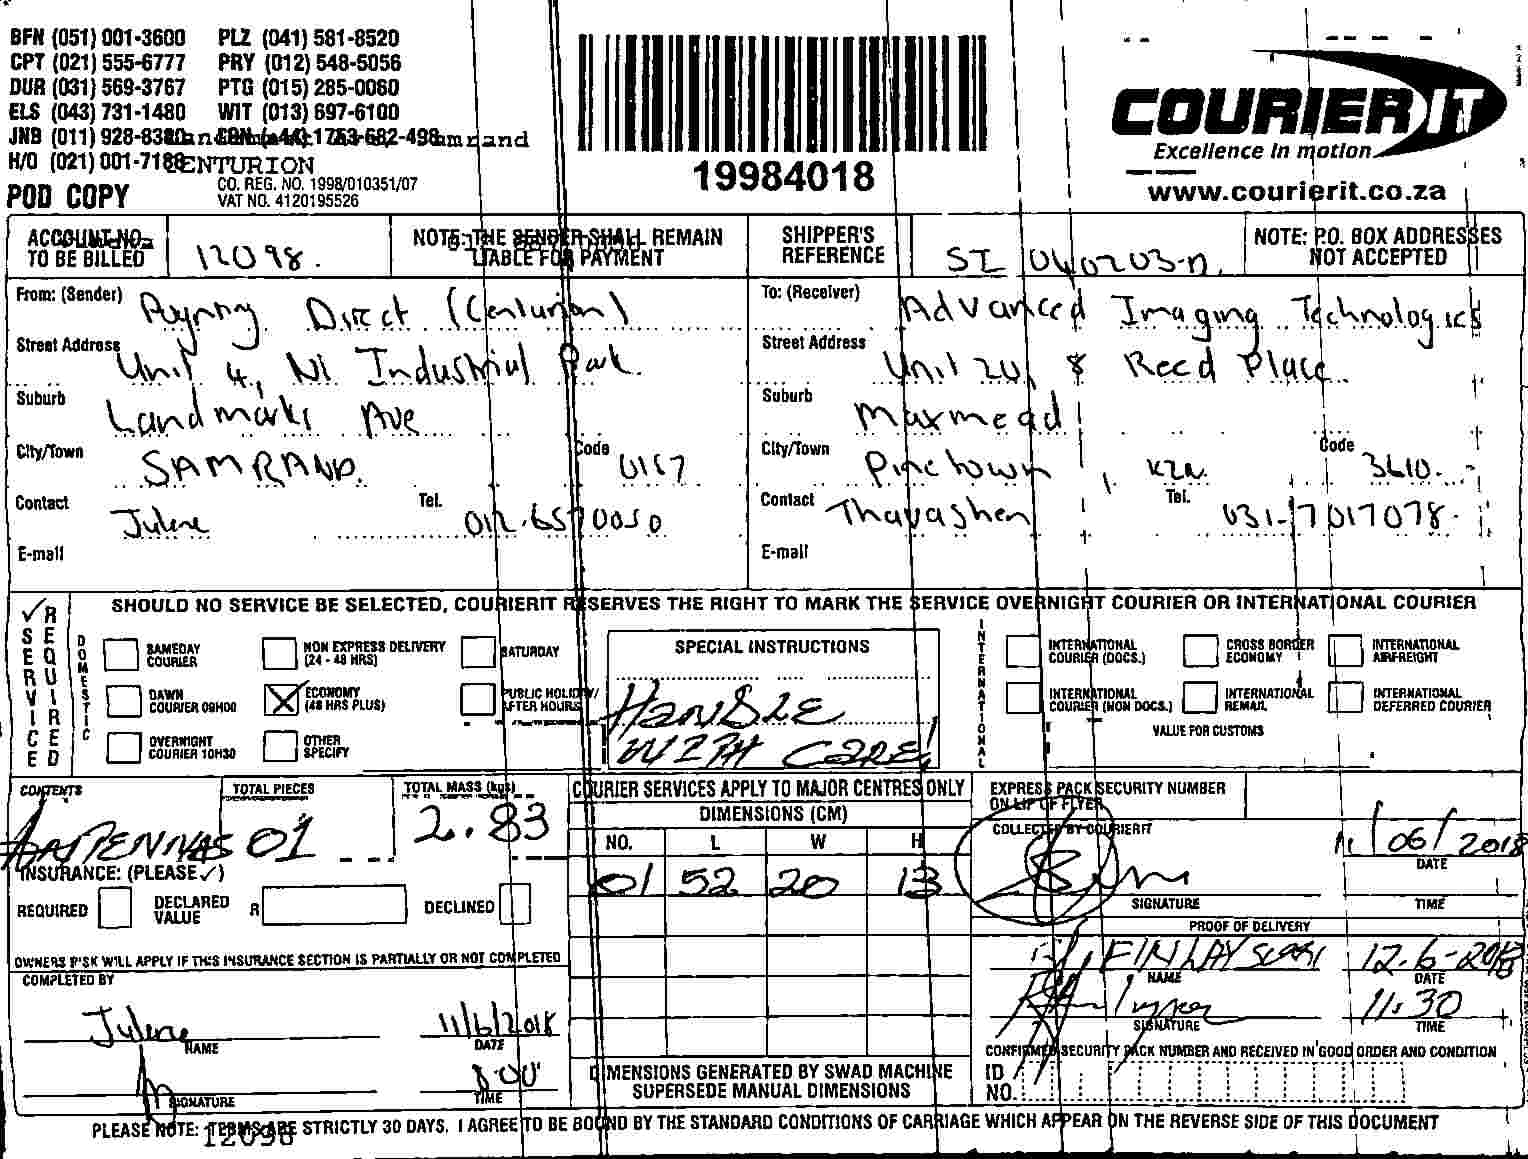 BFN (051) 001-3600 PLZ (041) 581-8520
CPT (021) 555-6777 PRY (012) 548-5056
DUR (031) 569-3767 PTG (015) 285-0060
ELS (043) 731-1480 WIT (013) 697-6100
JNB (011) 928-83
H/O (021) 001-718
CENTURION
CO. REG. NO. 1998/010351/07
POD COPY
VAT NO. 4120195526
19984018
COURIERIT
Excellence in motion
www.courierit.co.za
ACCOUNT NO. TO BE BILLED
12098.
NOTE: THE SENDER SHALL REMAIN LIABLE FOR PAYMENT
SHIPPER'S REFERENCE
SI 040203-
NOTE: P.O. BOX ADDRESSES NOT ACCEPTED
From: (Sender) Direct (Centurion)
Street Address Unit 4, N1 Industrial Park.
Suburb Landmarks Ave
City/Town SAMRAND. Code 0157
Contact Julene Tel. 012.6570050
E-mail
To: (Receiver) Advanced Imaging Technologies
Street Address Unit 20, 8 Reed Place.
Suburb Maxmead
City/Town Pinetown, KZN. Code 3610.
Contact Thavashen Tel. 031-7017078
E-mail
✓ SERVICE REQUIRED
SHOULD NO SERVICE BE SELECTED, COURIERIT RESERVES THE RIGHT TO MARK THE SERVICE OVERNIGHT COURIER OR INTERNATIONAL COURIER
DOMESTIC
SAMEDAY COURIER
NON EXPRESS DELIVERY (24 - 48 HRS)
SATURDAY
DAWN COURIER 09H00
ECONOMY (48 HRS PLUS)
PUBLIC HOLIDAY/ AFTER HOURS
OVERNIGHT COURIER 10H30
OTHER SPECIFY
SPECIAL INSTRUCTIONS
HANDLE
WITH CARE!
INTERNATIONAL
INTERNATIONAL COURIER (DOCS.)
CROSS BORDER ECONOMY
INTERNATIONAL AIRFREIGHT
INTERNATIONAL COURIER (NON DOCS.)
INTERNATIONAL REMAIL
INTERNATIONAL DEFERRED COURIER
VALUE FOR CUSTOMS
CONTENTS ANTENNAS
TOTAL PIECES 01
TOTAL MASS (kgs) 2.83
INSURANCE: (PLEASE ✓)
REQUIRED
DECLARED VALUE R
DECLINED
OWNERS RISK WILL APPLY IF THIS INSURANCE SECTION IS PARTIALLY OR NOT COMPLETED
COMPLETED BY
Julene 11/6/2018
NAME DATE
8:00
SIGNATURE TIME
COURIER SERVICES APPLY TO MAJOR CENTRES ONLY
DIMENSIONS (CM)
NO. L W H
01 52 20 13
DIMENSIONS GENERATED BY SWAD MACHINE SUPERSEDE MANUAL DIMENSIONS
EXPRESS PACK SECURITY NUMBER ON LIP OF FLYER
COLLECTED BY COURIERIT
11/06/2018
DATE
SIGNATURE TIME
PROOF OF DELIVERY
FINLAYSON 12-6-2018
NAME DATE
11:30
SIGNATURE TIME
CONFIRMED SECURITY PACK NUMBER AND RECEIVED IN GOOD ORDER AND CONDITION
ID NO.
PLEASE NOTE: TERMS ARE STRICTLY 30 DAYS. I AGREE TO BE BOUND BY THE STANDARD CONDITIONS OF CARRIAGE WHICH APPEAR ON THE REVERSE SIDE OF THIS DOCUMENT
12098